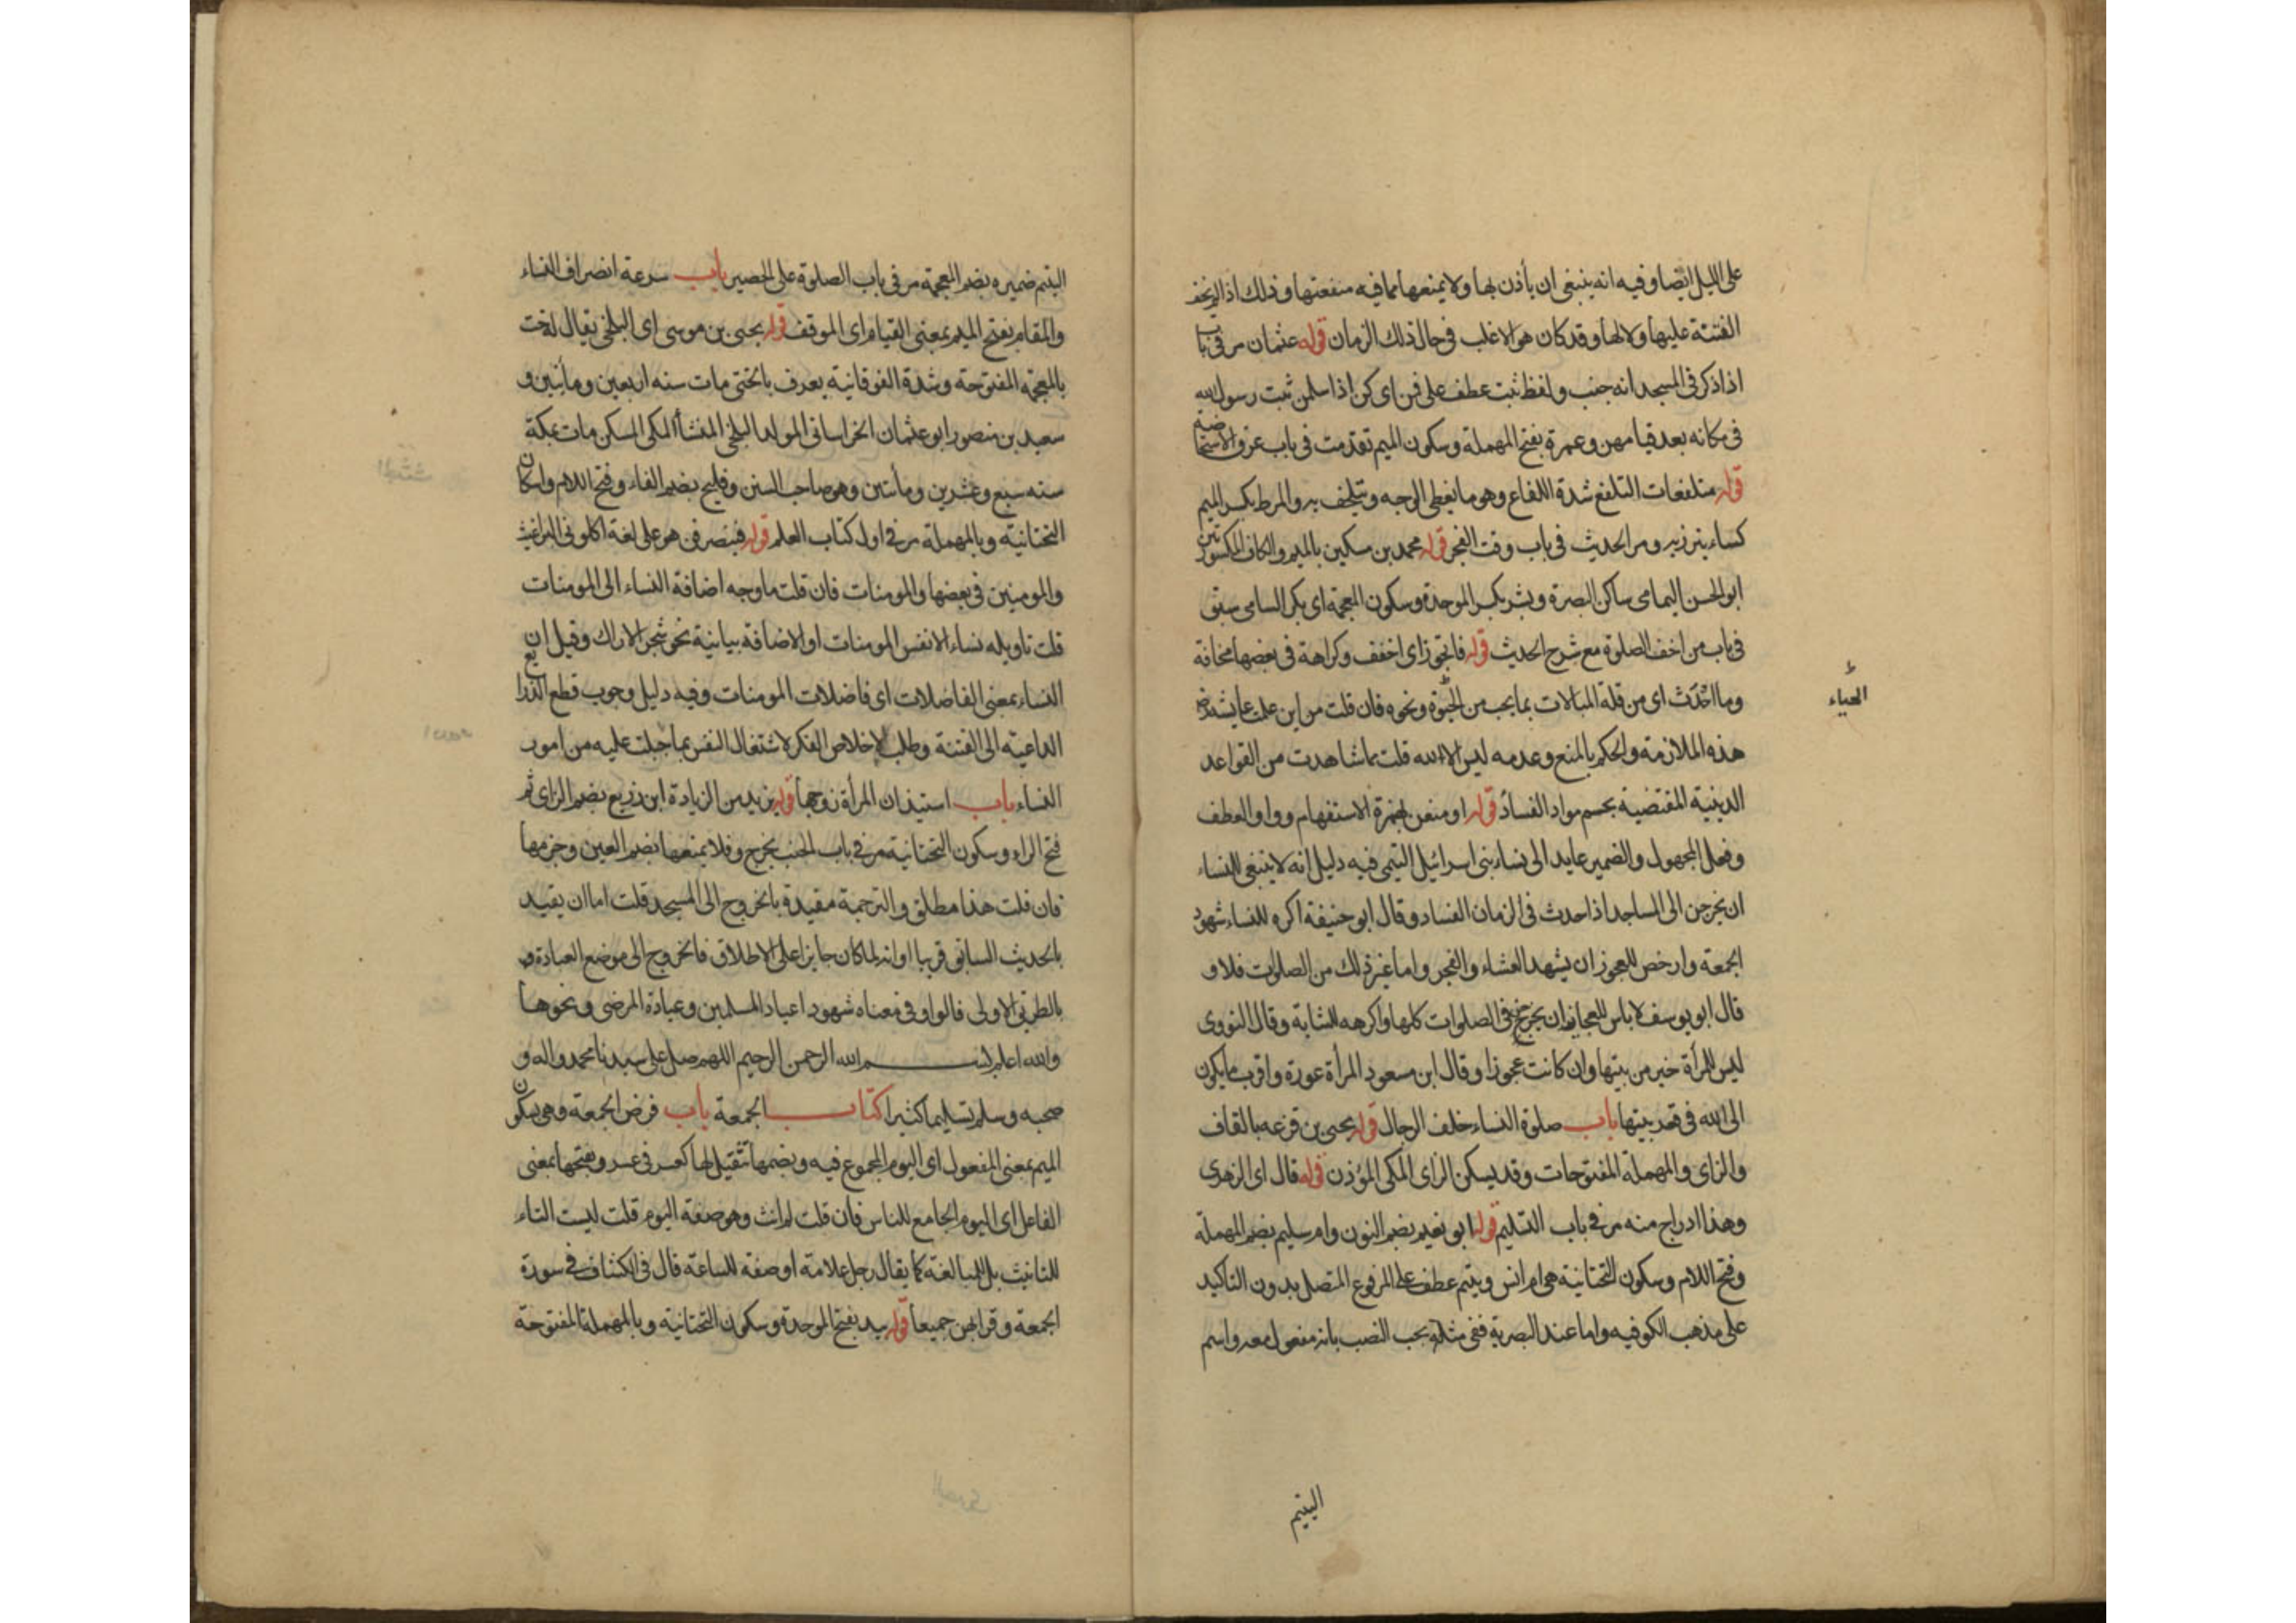 على الليل ايضا وفيه انه ينبغى ان يأذن لها ولا يمنعها مما فيه منفعتها وذلك اذا لم يخف
الفتنة عليها ولا لها وقد كان هو الاغلب فى حال ذلك الزمان قوله عثمان مر فى باب
اذا ذكر فى المسجد انه جنب ولفظ ثبت عطف على قمن اى كن اذا سلمن ثبت رسول الله
فى مكانه بعد قيامهن وعمرة بفتح المهملة وسكون الميم تقدمت فى باب عرق الاستحاضة
قوله متلفعات التلفع شدة اللفاع وهو ما يغطى الوجه ويتلحف به والمرط بكسر الميم
كساء يتزر به ومر الحديث فى باب وقت الفجر قوله محمد بن مسكين بالميم والكاف المكسورتين
ابو الحسن اليمامى ساكن البصرة وبشر بكسر الموحدة وسكون المعجمة اى بكر السامى سبق
فى باب من اخف الصلوة مع شرح الحديث قوله فاتجوز اى اخفف وكراهة فى بعضها مخافة
وما احدث اى من قلة المبالات بما يجب من الحبوة ونحوه فان قلت من اين علمت عايشة رض
الحياء
هذه الملازمة والحكم بالمنع وعدمه ليس الا لله قلت مما شاهدت من القواعد
الدينية المقتضية بحسم مواد الفساد قوله او منعن بهمزة الاستفهام وواو العطف
وفعل المجهول والضمير عايد الى نساء بنى اسرائيل التيمى فيه دليل انه لا ينبغى للنساء
ان يخرجن الى المساجد اذا حدث فى الزمان الفساد وقال ابو حنيفة اكره للنساء شهود
الجمعة وارخص للعجوز ان يشهد العشاء والفجر واما غير ذلك من الصلوات فلا و
قال ابو يوسف لا باس للعجايز ان يخرجن فى الصلوات كلها واكرهه للشابة وقال النووى
ليس للمرأة خير من بيتها وان كانت عجوزا وقال ابن مسعود المرأة عورة واقرب ما يكون
الى الله فى قعر بيتها باب صلوة النساء خلف الرجال قوله يحيى بن قزعه بالقاف
والزاى والمهملة المفتوحات وقد يسكن الزاى المكى المؤذن قوله قال اى الزهرى
وهذا ادراج منه مر فى باب التسليم قوله ابو نعيم بضم النون وام سليم بضم المهملة
وفتح اللام وسكون التحتانية هى ام انس ويتيم عطف على المرفوع المتصل بدون التاكيد
على مذهب الكوفيه واما عند البصرية ففى مثله يجب النصب بانه مفعول معه واسم
اليتيم
اليتيم ضميره بضم المعجمة مر فى باب الصلوة على الحصير باب سرعة انصراف النساء
والمقام بفتح الميم بمعنى القيام اى الموقف قوله يحيى بن موسى اى البلخى يقال له خت
بالمعجمه المفتوحة وشدة الفوقانية يعرف بالختى مات سنه اربعين ومأتين و
سعيد بن منصور ابو عثمان الخراسانى المولد البلخى المنشأ المكى المسكن مات بمكة
سنه سبع وعشرين ومأتين وهو صاحب السنن وفليح بضم الفاء وفتح اللام واسكان
التحتانية وبالمهملة مر فى اول كتاب العلم قوله فينصرفن هو على لغة اكلونى البراغيث
والمومنين فى بعضها والمومنات فان قلت ما وجه اضافة النساء الى المومنات
قلت تاويله نساء الانفس المومنات او الاضافة بيانية نحو شجر الاراك وقيل ان
النساء بمعنى الفاضلات اى فاضلات المومنات وفيه دليل وجوب قطع الذرايع
الداعية الى الفتنة وطلب لاخلاص الفكر لاشتغال النفس بما جبلت عليه من امور
النساء باب استيذان المرأة زوجها قوله يزيد من الزيادة ابن زريع بضم الزاى ثم
فتح الراء وسكون التحتانية مر فى باب الجنب يخرج وفلا يمنعها بضم العين وجزمها
فان قلت هذا مطلق والترجمة مقيدة بالخروج الى المسجد قلت اما ان يقيد
بالحديث السابق قريبا او انه لما كان جايزا على الاطلاق فالخروج الى موضع العبادة و
بالطريق الاولى فالواو فى معناه شهود اعياد المسلمين وعيادة المرضى ونحوها
والله اعلم بسم الله الرحمن الرحيم اللهم صل على سيدنا محمد واله و
صحبه وسلم تسليما كثيرا كتاب الجمعة باب فرض الجمعة وهى بسكون
الميم بمعنى المفعول اى اليوم المجموع فيه وبضمها تثقيل لها كعسر فى عسر وبفتحها بمعنى
الفاعل اى اليوم الجامع للناس فان قلت لم انث وهو صفة اليوم قلت ليست التاء
للتانيث بل للمبالغة كما يقال رجل علامة او صفة للساعة قال فى الكشاف فى سورة
الجمعة وقرا بهن جميعا قوله بيد بفتح الموحدة وسكون التحتانية وبالمهملة المفتوحة